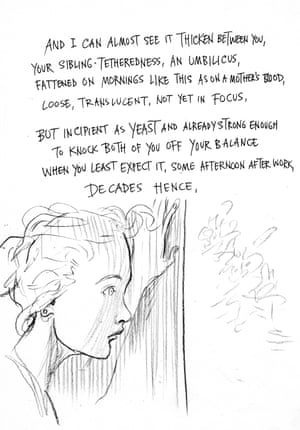 AND I CAN ALMOST SEE IT THICKEN BETWEEN YOU,
YOUR SIBLING-TETHEREDNESS, AN UMBILICUS,
FATTENED ON MORNINGS LIKE THIS AS ON A MOTHER'S BLOOD,
LOOSE, TRANSLUCENT, NOT YET IN FOCUS,
BUT INCIPIENT AS YEAST AND ALREADY STRONG ENOUGH
TO KNOCK BOTH OF YOU OFF YOUR BALANCE
WHEN YOU LEAST EXPECT IT, SOME AFTERNOON AFTER WORK,
DECADES HENCE,